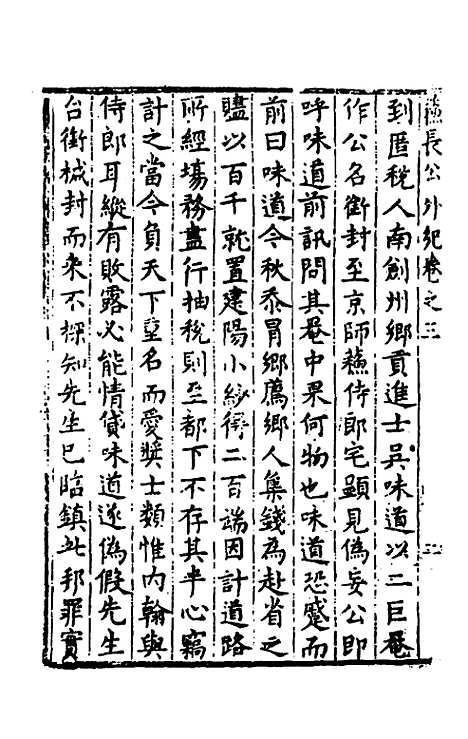 蘇長公外紀卷之三
三
到匿稅人南劍州鄉貢進士吳味道以二巨卷
作公名銜封至京師蘇侍郎宅顕見偽妄公即
呼味道前訊問其卷中果何物也味道恐蹙而
前曰味道今秋忝冐鄉薦鄉人集錢為赴省之
贐以百千就置建陽小紗得二百端因計道路
所經塲務盡行抽稅則至都下不存其半心竊
計之當今負天下重名而愛奬士類惟內翰與
侍郎耳縱有敗露必能情貸味道遂偽假先生
台銜緘封而來不探知先生已臨鎮此邦罪實